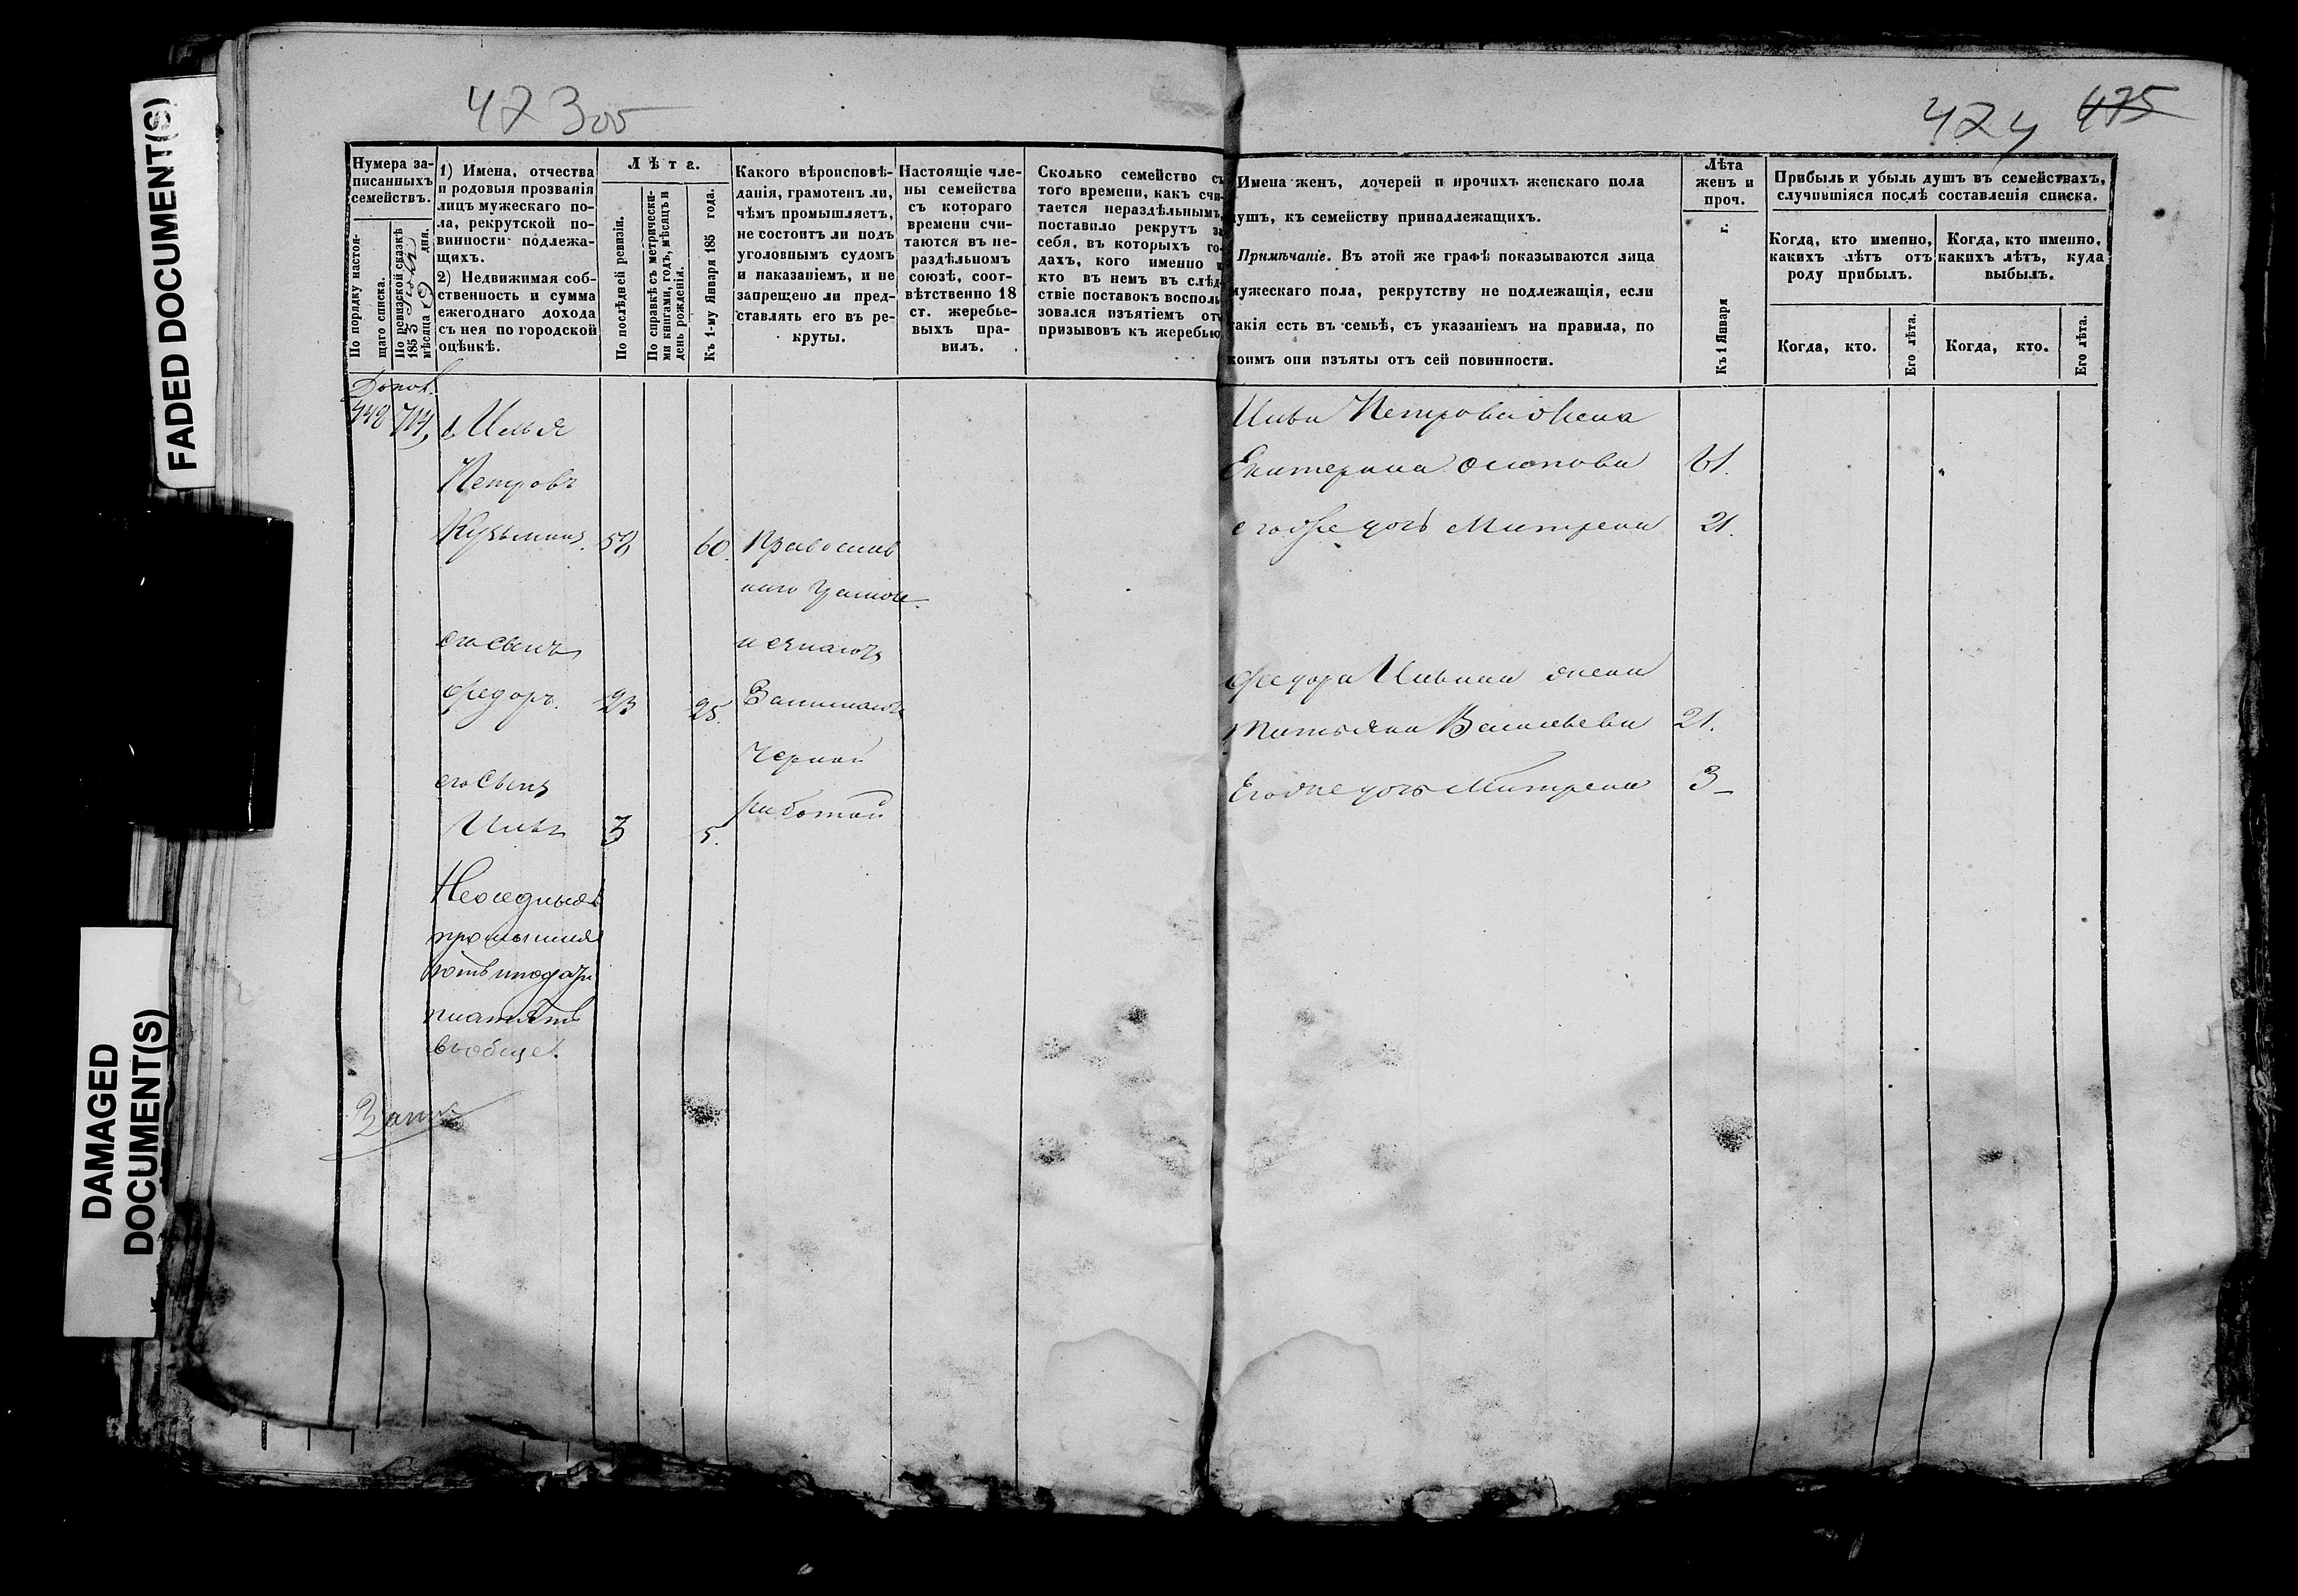 FADED DOCUMENT(S)
DAMAGED
DOCUMENT(S)
423 об
424 475
Нумера за-
писанныхъ
семействъ.
По порядку настоя-
щаго списка.
По ревизской сказкѣ
185
мѣсяца 9 дня.
1) Имена, отчества
и родовыя прозванія
лицъ мужескаго по-
ла, рекрутской по-
винности подлежа-
щихъ.
2) Недвижимая соб-
ственность и сумма
ежегоднаго дохода
съ нея по городской
оцѣнкѣ.
Лѣта.
По послѣдней ревизіи.
По справкѣ съ метрически-
ми книгами, годъ, мѣсяцъ и
день рожденія.
Къ 1-му Января 185 года.
Какого вѣроисповѣ-
данія, грамотенъ ли,
чѣмъ промышляетъ,
не состоитъ ли подъ
уголовнымъ судомъ
и наказаніемъ, и не
запрещено ли пред-
ставлять его въ ре-
круты.
Настоящіе чле-
ны семейства
съ котораго
времени счи-
таются въ не-
раздѣльномъ
союзѣ, соот-
вѣтственно 18
ст. жеребье-
выхъ пра-
вилъ.
Сколько семейство съ
того времени, какъ счи-
тается нераздѣльнымъ,
поставило рекрутъ за
себя, въ которыхъ го-
дахъ, кого именно и
кто въ немъ въ слѣд-
ствіе поставокъ восполь-
зовался изъятіемъ отъ
призывовъ къ жеребью
Имена женъ, дочерей и прочихъ женскаго пола
душъ, къ семейству принадлежащихъ.
Примѣчаніе. Въ этой же графѣ показываются лица
мужескаго пола, рекрутству не подлежащія, если
такія есть въ семьѣ, съ указаніемъ на правила, по
коимъ они изъяты отъ сей повинности.
Лѣта
женъ и
проч.
Къ 1 Января г.
Прибыль и убыль душъ въ семействахъ,
случившіяся послѣ составленія списка.
Когда, кто именно,
какихъ лѣтъ отъ
роду прибылъ.
Когда, кто именно,
какихъ лѣтъ, куда
выбылъ.
Когда, кто.
Его лѣта.
Когда, кто.
Его лѣта.
Илья
Петровъ
Кузьминъ. 58 60. Православ
наго
его сынъ
Федоръ. 23 25. Занимаютъ
черной
его сынъ работой
Илья 3 5.
Неоседлыя
промышля
ютъ подати
платятъ
вообще.
Ильи Петрова жена
Екатерина Осипова 61.
его же дочь Матрена 21.
Федора Ильина жена
Татьяна Васильева 21.
Его же дочь Матрена 3